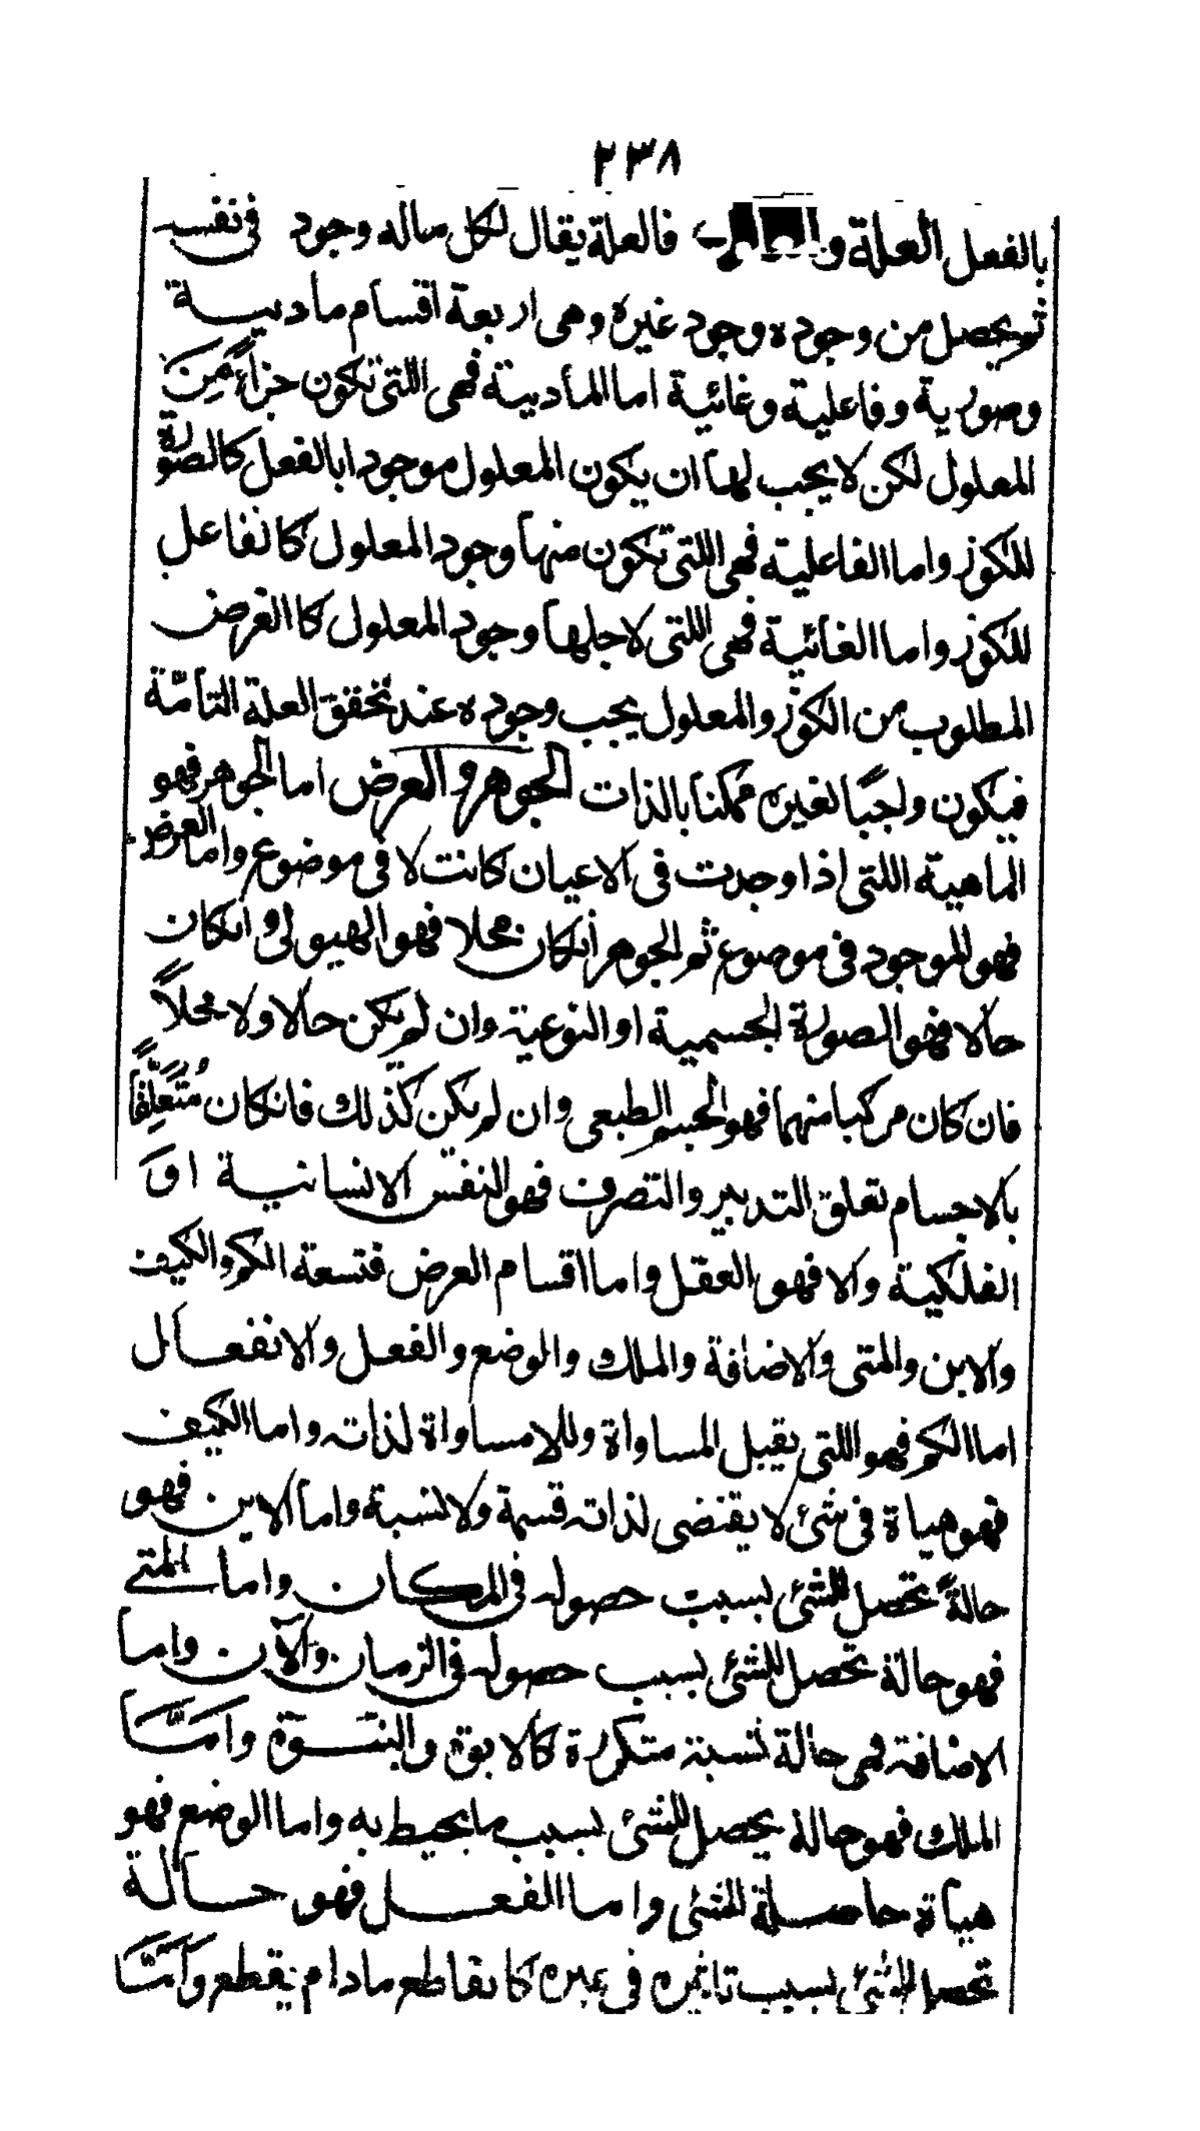 ٢٣٨
بالفعل العلة و فالعلة يقال لكل ماله وجود فى نفسه
ثم يحصل من وجوده وجود غيره وهى اربعة اقسام مادبية
وصورية وفاعلية وغائية اما المادبية فهى اللتى تكون جزاءً مِنَ
المعلول لكن لا يجب لها ان يكون المعلول موجودا بالفعل كالصورة
للكوز واما الفاعلية فهى اللتى تكون منها وجود المعلول كالفاعل
للكوز واما الغائية فهى اللتى لاجلها وجود المعلول كالغرض
المطلوب من الكوز والمعلول يجب وجوده عند تحقق العلة التامّة
فيكون واجبًا لغيره ممكنا بالذات الجوهر والعرض اما الجوهر فهو
الماهية اللتى اذا وجدت فى الاعيان كانت لا فى موضوع واما العرض
فهو الموجود فى موضوع ثم الجوهر انكان محلا فهو الهيولى وانكان
حالا فهو الصورة الجسمية او النوعية وان لم يكن حالا ولا محلاً
فان كان مركبا منهما فهو الجسم الطبعى وان لم يكن كذلك فانكان مُتَعَلِّقًا
بالاجسام تعلق التدبير والتصرف فهو النفس الانسانية اوَ
الفلكية والا فهو العقل واما اقسام العرض فتسعة الكم والكيف
والاين والمتى والاضافة والملك والوضع والفعل والانفعال
اما الكم فهو اللتى يقبل المساواة واللامساواة لذاته واما الكيف
فهو هياة فى شئ لا يقتضى لذاته قسمة ولا نسبة واما الاين فهو
حالةً تحصل للشئ بسبب حصوله فى المكان واما المتى
فهو حالة تحصل للشئ بسبب حصوله فى الزمان والآن واما
الاضافة فهى حالة نسبة متكررة كالابوة والبنوة وامَّا
الملك فهو حالة يحصل للشئ بسبب ما يحيط به واما الوضع فهو
هياة حاصلة للشئ واما الفعل فهو حالة
تحصل للشئ بسبب تاثيره فى غيره كالقاطع مادام يقطع وامَّا